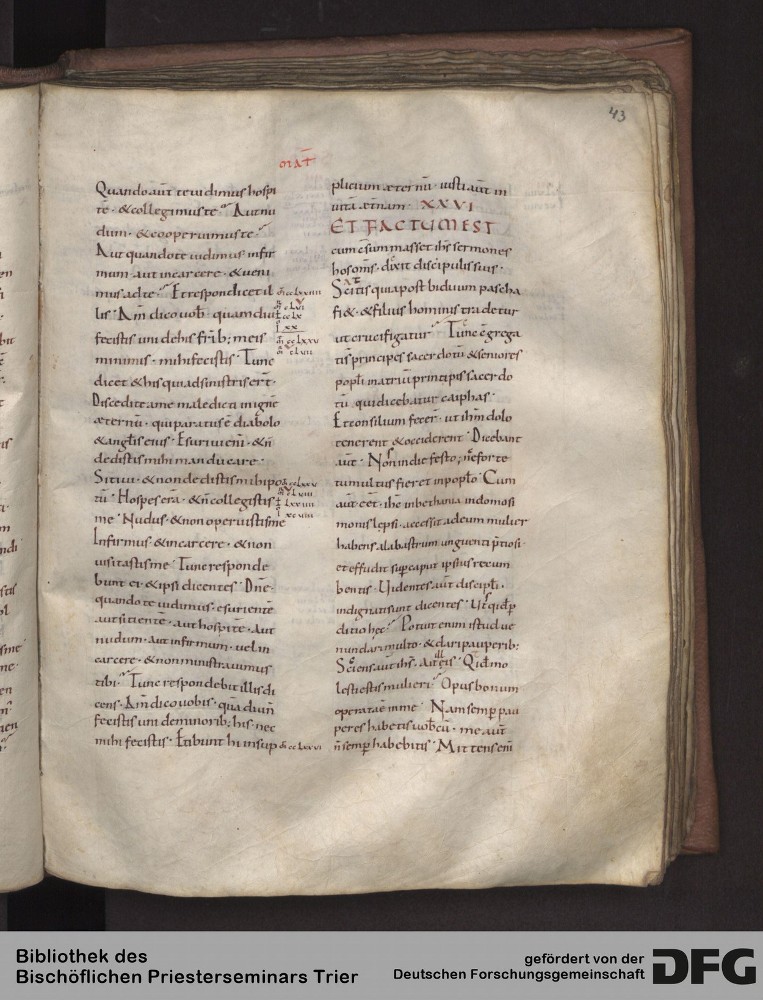 43
MAT̄
Quando aūt te uidimus hospi
tē · & collegimus te · Aut nu
dum · & cooperuimus te ·
Aut quando te uidimus infir
mum · aut in carcere · & ueni
mus ad te · Et respondic et il
lis · Am̄ dico uob̄ · quamdiu
fecistis uni de his fr̄ib; meis
minimis · mihi fecistis · Tunc
dicet & his qui ad sinistris er̄t ·
Discedite a me maledicti in ignē
æternū · qui paratus ē diabolo
& angl̄is eius · Esuriui eni · & n̄
dedistis mihi manducare ·
Sitiui · & non dedistis mihi po
tū · Hospes erā · & n̄ collegistis
me · Nudus · & non operuistis me
Infirmus · & in carcere · & non
uisitastis me · Tunc responde
bunt ei & ipsi dicentes · Dn̄e ·
quando te uidimus · esurientē
aut sitientē · aut hospitē · aut
nudum · aut infirmum · uel in
carcere · & non ministrauimus
tibi · Tunc respondebit illis di
cens · Am̄ dico uobis · quādiu n̄
fecistis uni de minorib; his · nec
mihi fecistis · Et ibunt hi in sup
plicium æternū · iusti aūt in
uitā æt̄nam · XXVI
ET FACTUM EST
cum c̄summasset ih̄s sermones
hos om̄s · dixit discipulis suis ·
Scitis quia post biduum pascha
fi& · & filius hominis tradetur
ut crucifigatur · Tunc c̄grega
ti s̄ principes sacerdotū & seniores
popl̄i in atriū principis sacerdo
tū · qui dicebatur caiphas ·
Et consilium fecer̄ · ut ih̄m dolo
tenerent & occiderent · Dicebant
aūt · Non in die festo · ne forte
tumultus fieret in popl̄o · Cum
aūt eēt · ih̄c in bethania in domo si
monis leprosi · accessit ad eum mulier
habens alabastrum unguenti p̄tiosi ·
et effudit sup caput ipsius recum
bentis · Uidentes aūt discipl̄i ·
indignati sunt dicentes · Ut quid p
ditio hec · Potuit enim istud ue
nundari multo · & dari pauperib;
Sciens aūt ih̄s · Ait illis · Quid mo
lesti estis mulieri · Opus bonum
operata ē in me · Nam semp pau
peres habetis uob̄cū · me aūt
n̄ semp habebitis · Mittens eni
Bibliothek des
Bischöflichen Priesterseminars Trier
gefördert von der
Deutschen Forschungsgemeinschaft
DFG